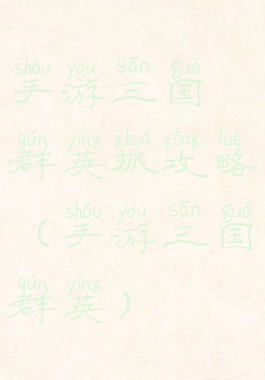 shǒu yóu sān guó
手游三国
qún yīng zhuā gōng lüè
群英抓攻略
shǒu yóu sān guó
（手游三国
qún yīng
群英）